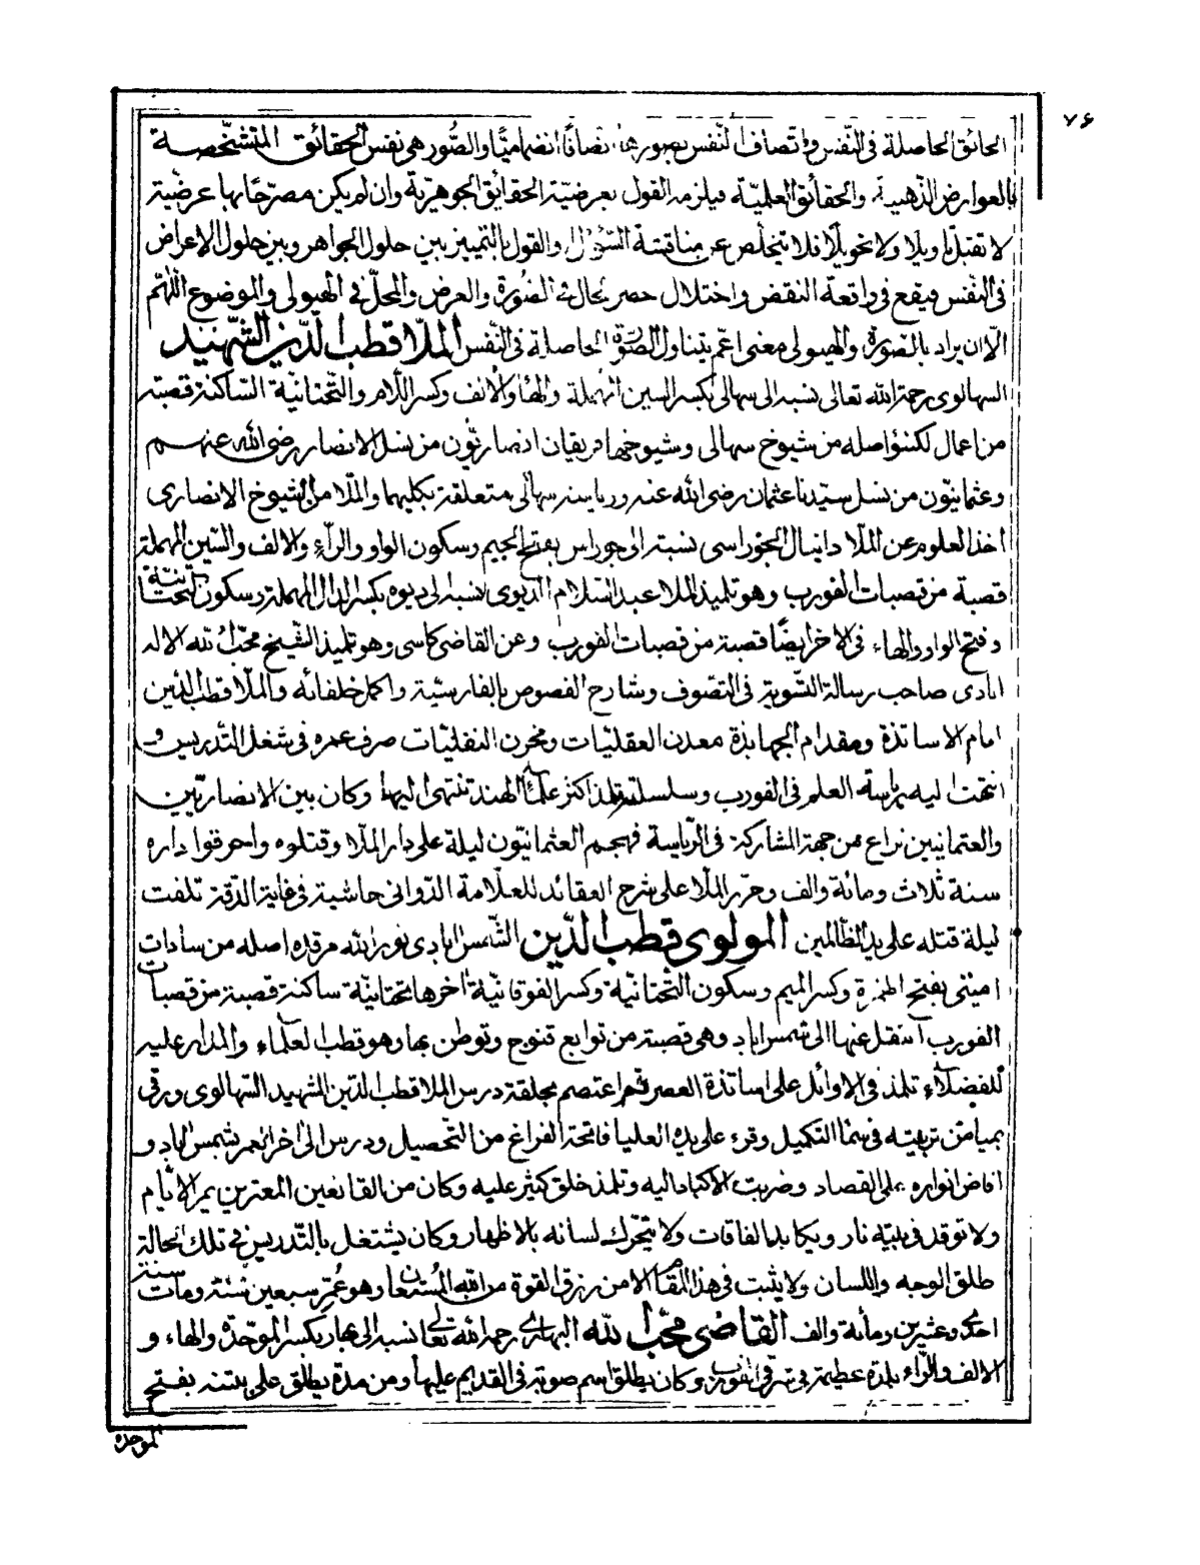 ٧۶
الحائق الحاصلة فى النّفس واتصاف النّفس بصورها اتصافًا انضماميًّا والصُّور هى نفس الحقائق المتشخّصة
بالعوارض الذهنية والحقائق العلميّة فيلزمه القول بعرضيّة الحقائق الجوهريّة وان لم يكن مصرّحًا بها عرضيّة
لا تقبل تاويلًا ولا تحويلًا فلا يتخلّص عن مناقشة السّؤال والقول بالتمييز بين حلول الجواهر وبين حلول الاعراض
فى النّفس فيقع فى واقعة النقض واختلال حصر الحال فى الصُّورة والعرض والمحلّ فى الهيولى والموضوع اللّهمّ
الّا ان يراد بالصّورة والهيولى معنى اعم يتناول الصّورة الحاصلة فى النّفس الملّا قطب الدّين الشّهيد
السهالوى رحمة الله تعالى نسبه الى سهالى بكسر السين المهملة والهاء والالف وكسر اللّام والتّحتانيّة الساكنة قصبة
من اعمال لكنؤ اصله من شيوخ سهالى وشيوخها فريقان انصاريّون من نسل الانصار رضى الله عنهم
وعثمانيّون من نسل سيّدنا عثمان رضى الله عنه ورياسة سهالى متعلقة بكليهما والملّا من الشيوخ الانصارى
اخذ العلوم عن الملّا دانيال الجوراسى نسبة الى جوراس بفتح الجيم وسكون الواو والرّاء والالف والسّين المهملة
قصبة من قصبات الفورب وهو تلميذ الملا عبد السّلام الديوى نسبة الى ديوه بكسر الدال المهملة وسكون التحتانيّة
وفتح الواو والهاء فى الاخر ايضًا قصبة من قصبات الفورب وعن القاضى كاسى وهو تلميذ الشّيخ محبّ الله الاله
ابادى صاحب رسالة التّسوية فى التصّوف وشارح الفصوص بالفارسيّة واكمل خلفائه والملّا قطب الدّين
امام الاساتذة ومقدام الجهابذة معدن العقليّات ومخزن النقليّات صرف عمره فى شغل التّدريس و
انتهت اليه رياسة العلم فى الفورب وسلسلة تلمذ اكثر علماء الهند تنتهى اليها وكان بين الانصاريّين
والعثمانيين نزاع من جهة المشاركة فى الرّياسة فهجم العثمانيّون ليلة على دار الملّا وقتلوه واحرقوا داره
سنة ثلاث ومائة والف وحرّر الملّا على شرح العقائد للعلّامة الدّوانى حاشية فى غاية الدّقة تلفت
ليلة قتله على يد الظّالمين المولوى قطب الدّين الشّمس ابادى نور الله مرقده اصله من سادات
اميتى بفتح الهمزة وكسر الميم وسكون التّحتانيّة وكسر الفوقانيّة اخرها تحتانيّة ساكنة قصبة من قصبات
الفورب انتقل عنها الى شمس اباد وهى قصبة من توابع قنوج وتوطن بها وهو قطب لعلماء والمدار عليه
للفضلاء تلمذ فى الاوائل على اساتذة العصر ثم اعتصم بحلقة درس الملا قطب الدّين الشهيد السّهالوى ورقى
بميامن تربيته فى سما التكميل وقرء على يده العليا فاتحة الفراغ من التّحصيل ودرس الى اخر العمر بشمس اباد و
افاض انواره على القصاد وضربت الاكباد اليه وتلمذ خلق كثير عليه وكان من القانعين المعترين يمر الايّام
ولا توقد فى بيته نار ويكابد الفاقات ولا يتحرّك لسانه بالاظهار وكان يشتغل بالتّدريس فى تلك الحالة
طلق الوجه واللسان ولا يثبت فى هذا المقام الا من رزق القوة من الله المُستعان وهو عمّر سبعين سنة ومات سنة
احدى وعشرين ومائة والف القاضى محبّ الله البهارى رحمه الله تعالى نسبه الى بهار بكسر الموحّدة والهاء و
الالف والرّاء بلدة عظيمة فى شرقى الفورب وكان يطلق اسم صوبة فى القديم عليها ومن مدة يطلق على پتنه بفتح
الموحدة